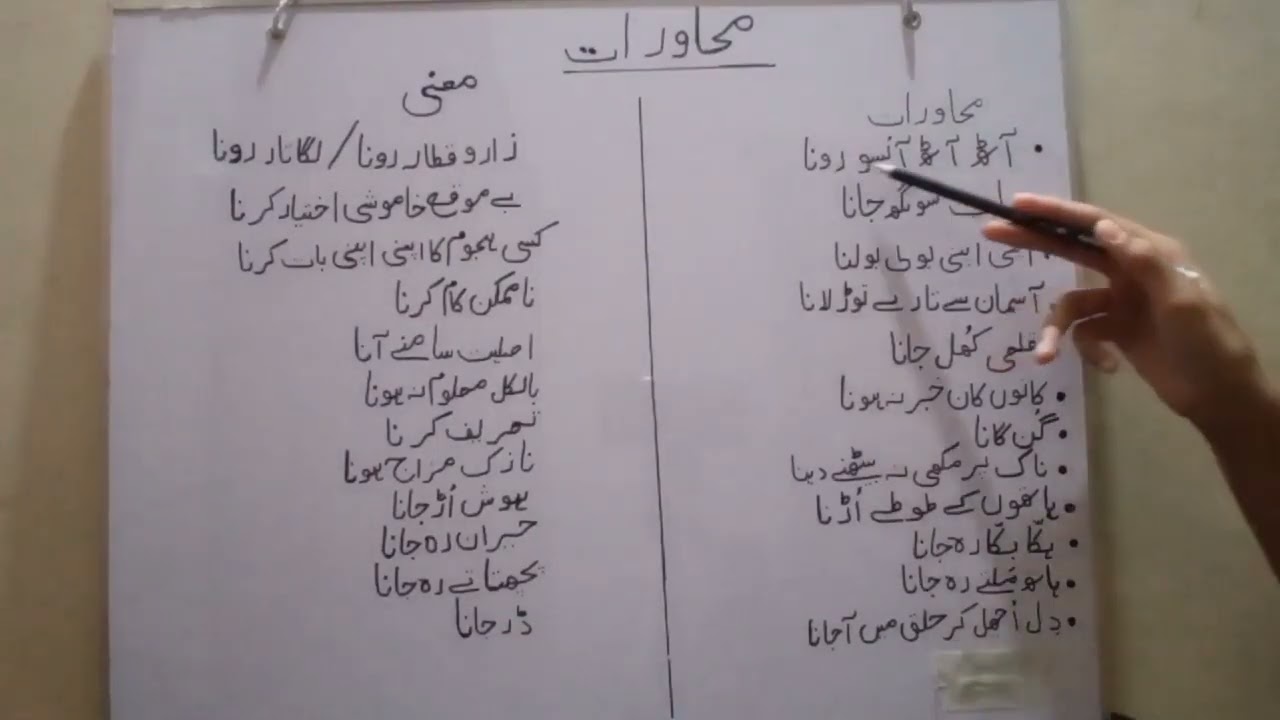 محاورات
محاورات
معنی
آٹھ آٹھ آنسو رونا
زار و قطار رونا / لگاتار رونا
سونگھ جانا
بے موقع خاموشی اختیار کرنا
اپنی بولی بولنا
کسی ہجوم کا اپنی اپنی بات کرنا
آسمان سے تارے توڑ لانا
ناممکن کام کرنا
قلعی کُھل جانا
اصلیت سامنے آنا
کانوں کان خبر نہ ہونا
بالکل معلوم نہ ہونا
گُن گانا
تعریف کرنا
ناک پر مکھی نہ بیٹھنے دینا
نازک مزاج ہونا
ہاتھوں کے طوطے اُڑنا
ہوش اُڑ جانا
ہکّا بکّا رہ جانا
حیران رہ جانا
ہاتھ مَلتے رہ جانا
پچھتاتے رہ جانا
دِل اُچھل کر حلق میں آ جانا
ڈر جانا